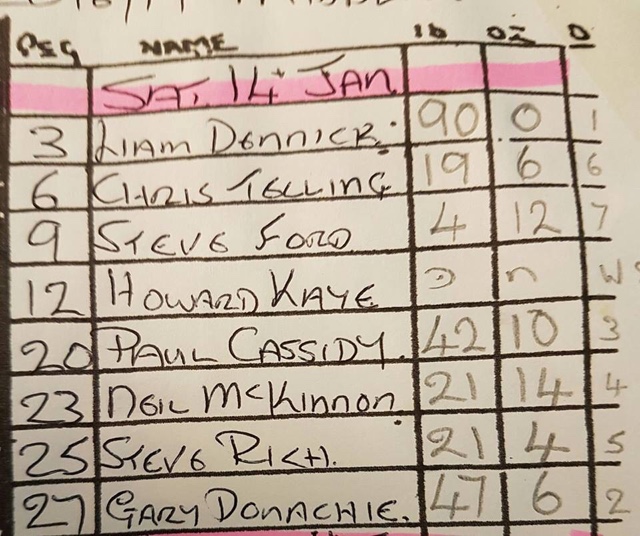 PEG NAME lb oz D
SAT. 14t JAN
3 LIAM DENNICK. 90 0 1
6 CHRIS TELLING 19 6 6
9 STEVE FORD 4 12 7
12 HOWARD KAYE D n W
20 PAUL CASSIDY. 42 10 3
23 NEIL McKINNON. 21 14 4
25 STEVE RICH. 21 4 5
27 GARY DONACHIE. 47 6 2